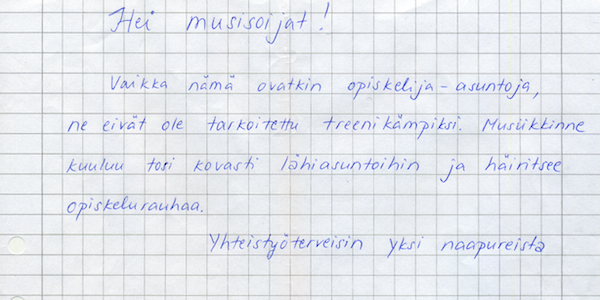 Hei musisoijat!
Vaikka nämä ovatkin opiskelija-asuntoja,
ne eivät ole tarkoitettu treenikämpiksi. Musiikkinne
kuuluu tosi kovasti lähiasuntoihin ja häiritsee
opiskelurauhaa.
Yhteistyöterveisin yksi naapureista